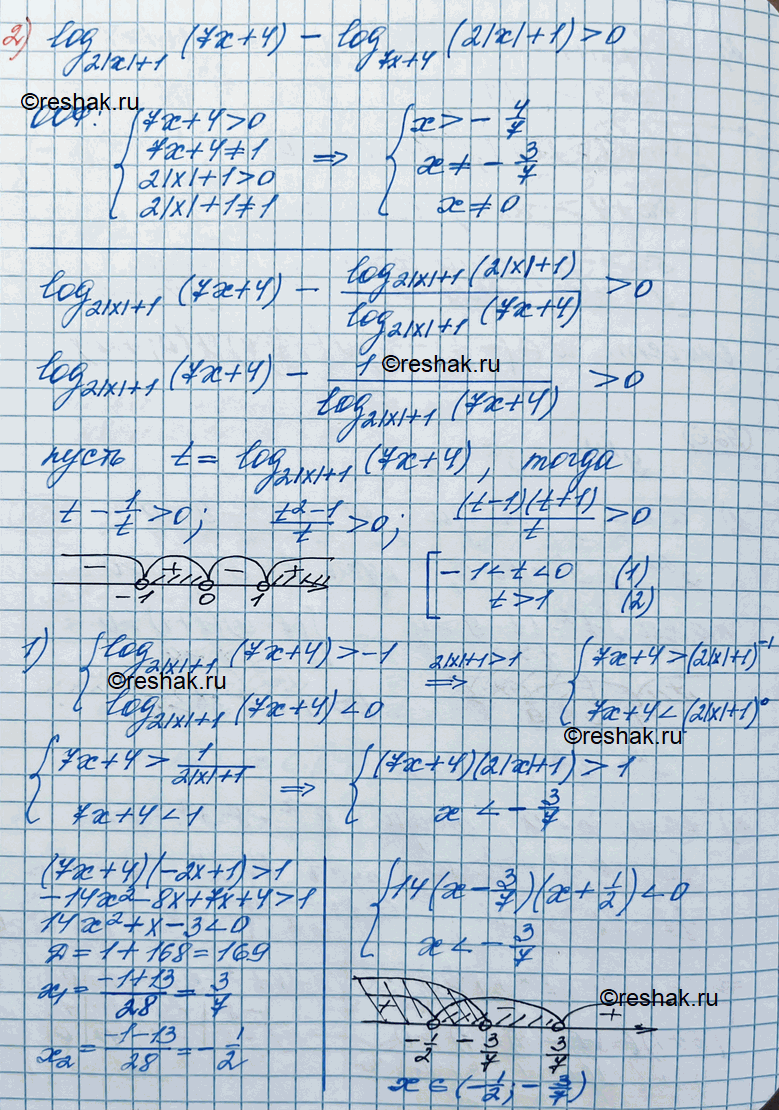 2) log₂|ₓ|₊₁ (7x+4) − log₇ₓ₊₄ (2|x|+1) > 0
©reshak.ru
ООУ: { 7x+4>0 ⇒ { x > − 4/7
7x+4≠1 x ≠ − 3/7
2|x|+1>0 x ≠ 0
2|x|+1≠1
log₂|ₓ|₊₁ (7x+4) − log₂|ₓ|₊₁ (2|x|+1) / log₂|ₓ|₊₁ (7x+4) > 0
log₂|ₓ|₊₁ (7x+4) − 1 / log₂|ₓ|₊₁ (7x+4) > 0
©reshak.ru
пусть t = log₂|ₓ|₊₁ (7x+4), тогда
t − 1/t > 0; (t²−1)/t > 0; (t−1)(t+1)/t > 0
− + − + [ −1 < t < 0 (1)
−1 0 1 t > 1 (2)
1) { log₂|ₓ|₊₁ (7x+4) > −1 2|x|+1>1 ⇒ { 7x+4 > (2|x|+1)⁻¹
©reshak.ru
log₂|ₓ|₊₁ (7x+4) < 0 7x+4 < (2|x|+1)⁰
©reshak.ru
{ 7x+4 > 1/(2|x|+1) ⇒ { (7x+4)(2|x|+1) > 1
7x+4 < 1 x < − 3/7
(7x+4)(−2x+1) > 1
−14x²−8x+7x+4 > 1
14x²+x−3 < 0
D = 1+168 = 169
x₁ = (−1+13)/28 = 3/7
x₂ = (−1−13)/28 = − 1/2
{ 14(x − 3/7)(x + 1/2) < 0
x < − 3/7
©reshak.ru
+ − +
− 1/2 − 3/7 3/7
x ∈ (− 1/2; − 3/7)